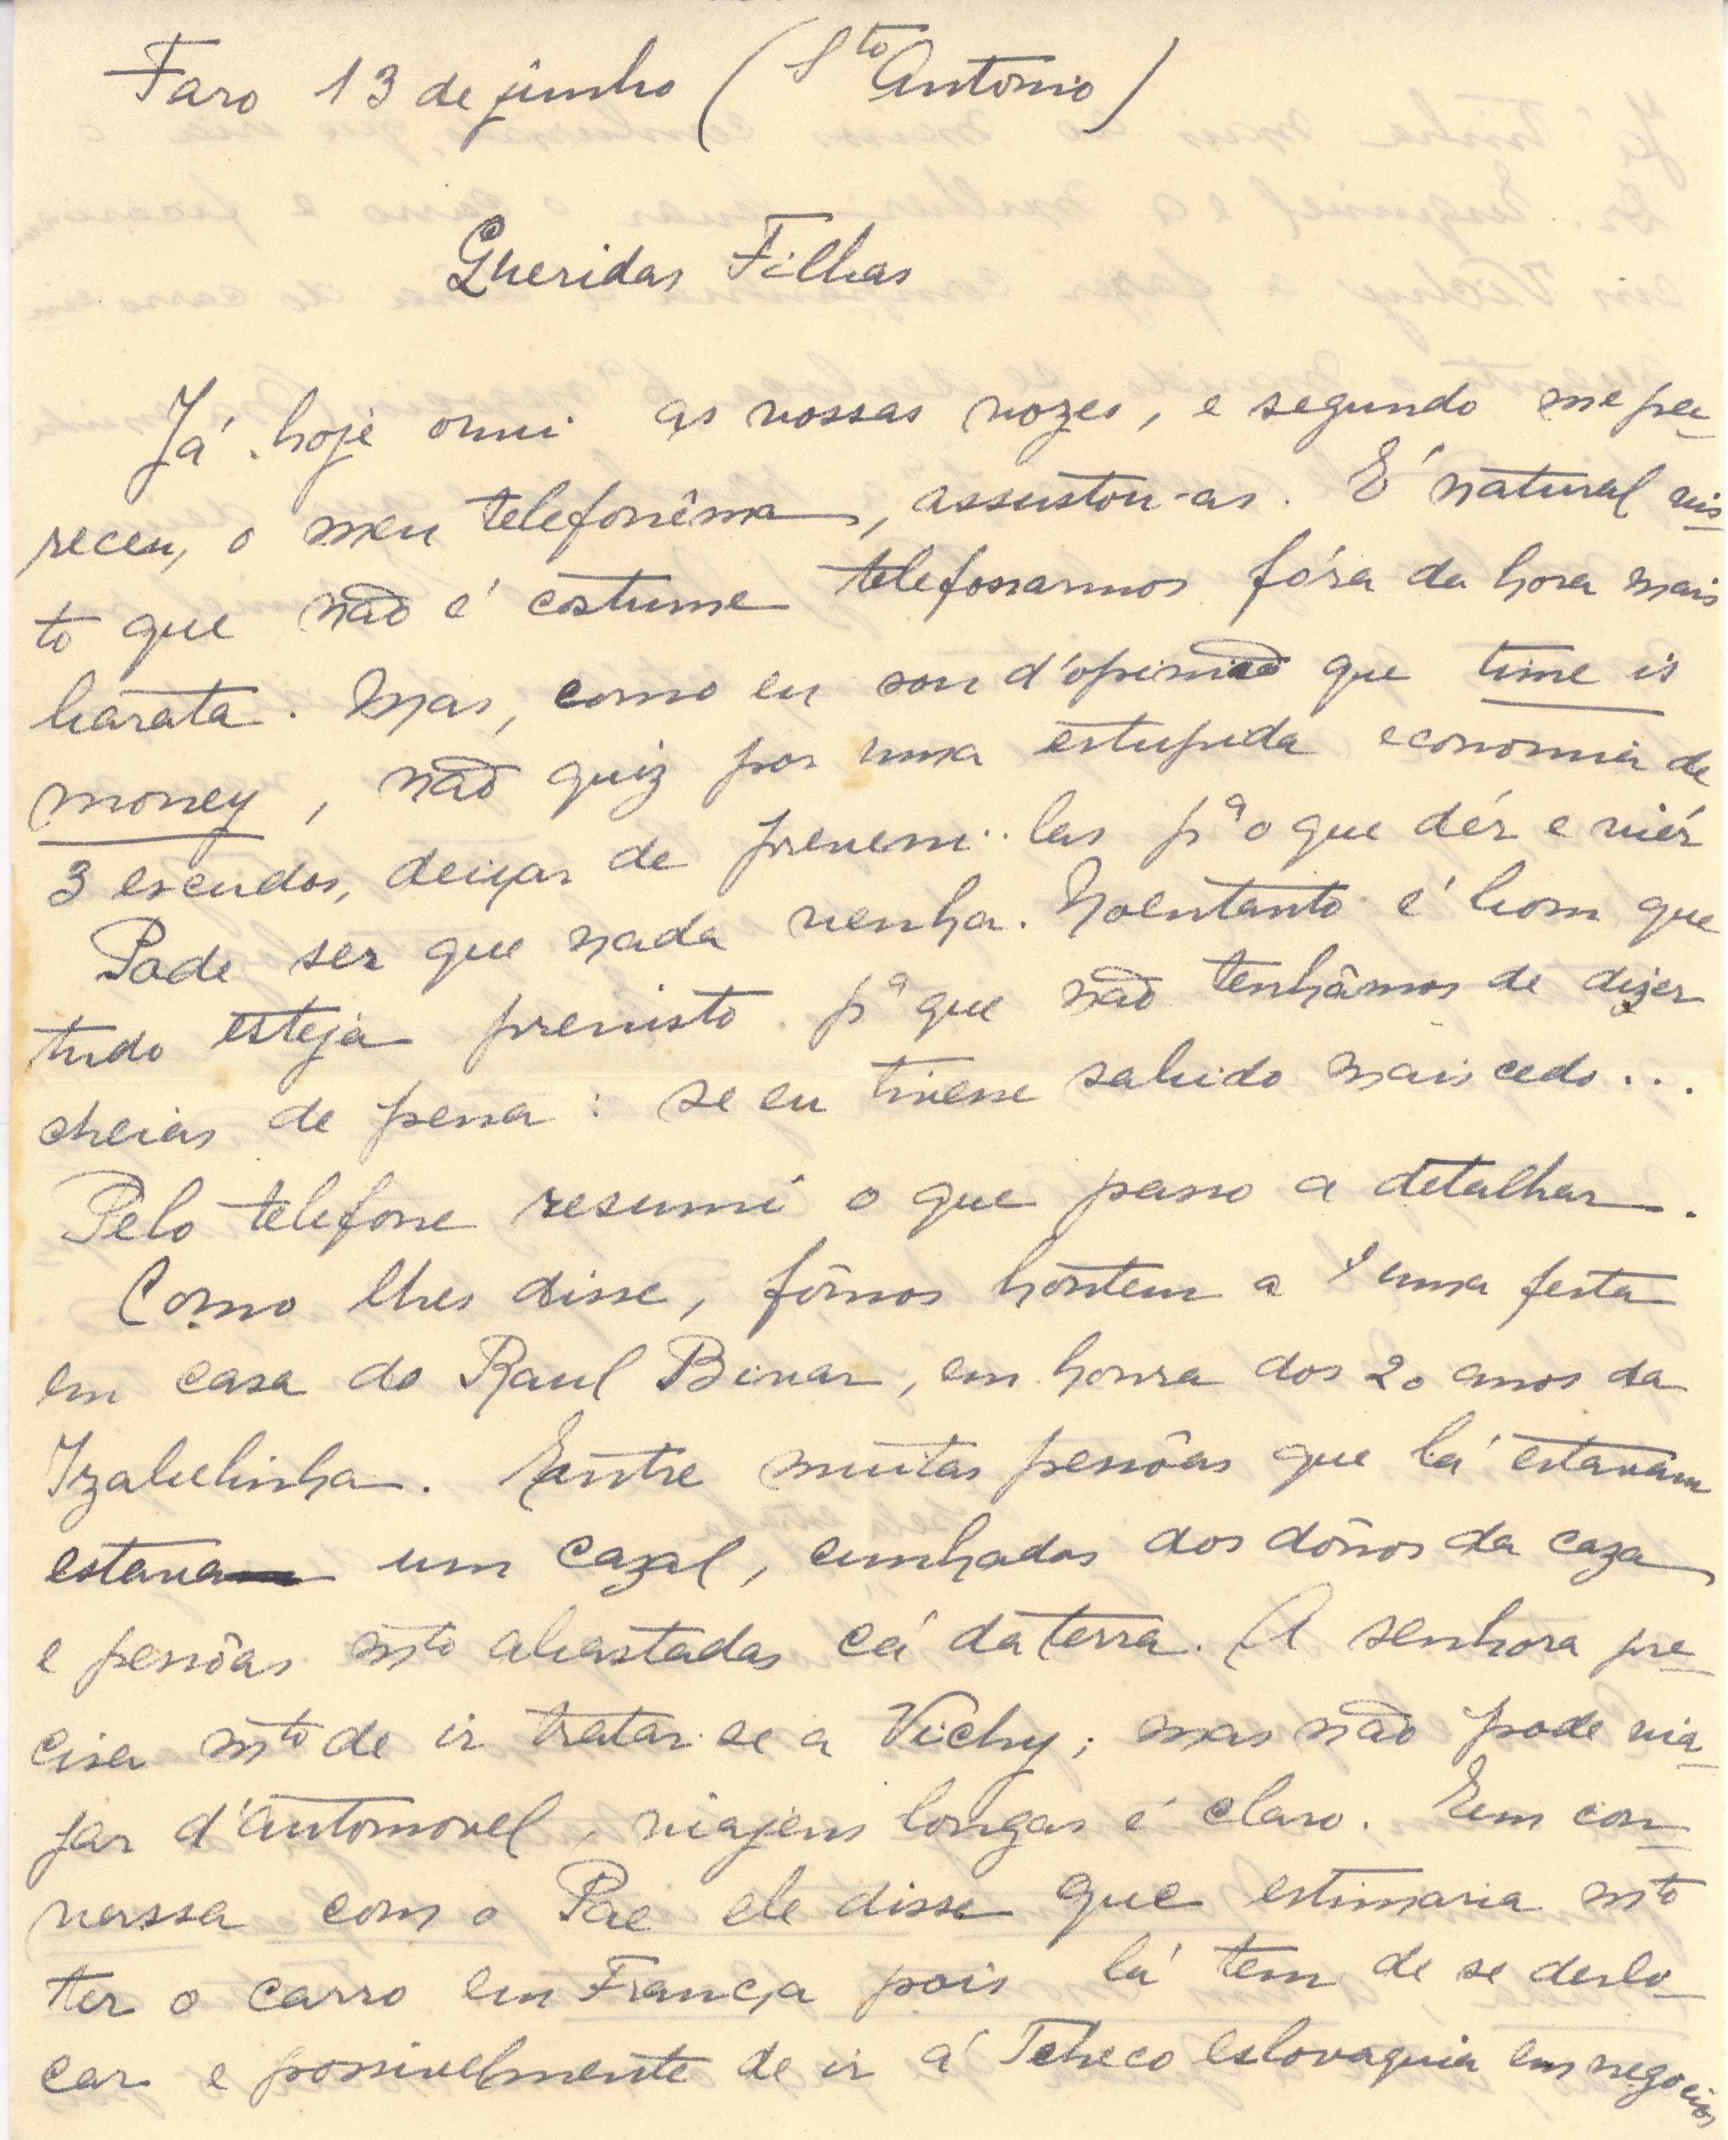 Faro 13 de junho (Sto Antonio)
Queridas Filhas
Já hoje ouvi as vossas vozes, e segundo me pa-
receu, o meu telefonêma, assustou-as. É natural vis-
to que não é costume telefonarmos fóra da hora mais
barata. Mas, como eu sou d'opinião que time is
money, não quiz por uma estupida economia de
3 escudos, deixar de preveni-las pª o que dér e viér
Pode ser que nada venha. Noentanto é bom que
tudo esteja previsto pª que não tenhâmos de dizer
cheias de pena: se eu tivesse sabido mais cedo...
Pelo telefone resumi o que passo a detalhar.
Como lhes disse, fômos hontem a uma festa
em casa do Raul Bivar, em honra dos 20 anos da
Izabelinha. Entre muitas pessôas que lá estavam
estava um cazal, cunhados dos dônos da caza
e pessôas mto abastadas cá da terra. A senhora pre-
cisa mto de ir tratar-se a Vichy; mas não pode via-
jar d'automovel, viajens longas é claro. Em con-
verssa com o Pae ele disse que estimaria mto
ter o carro em França pois lá tem de se deslo-
car e possivelmente de ir á Tcheco eslovaquia em negocios